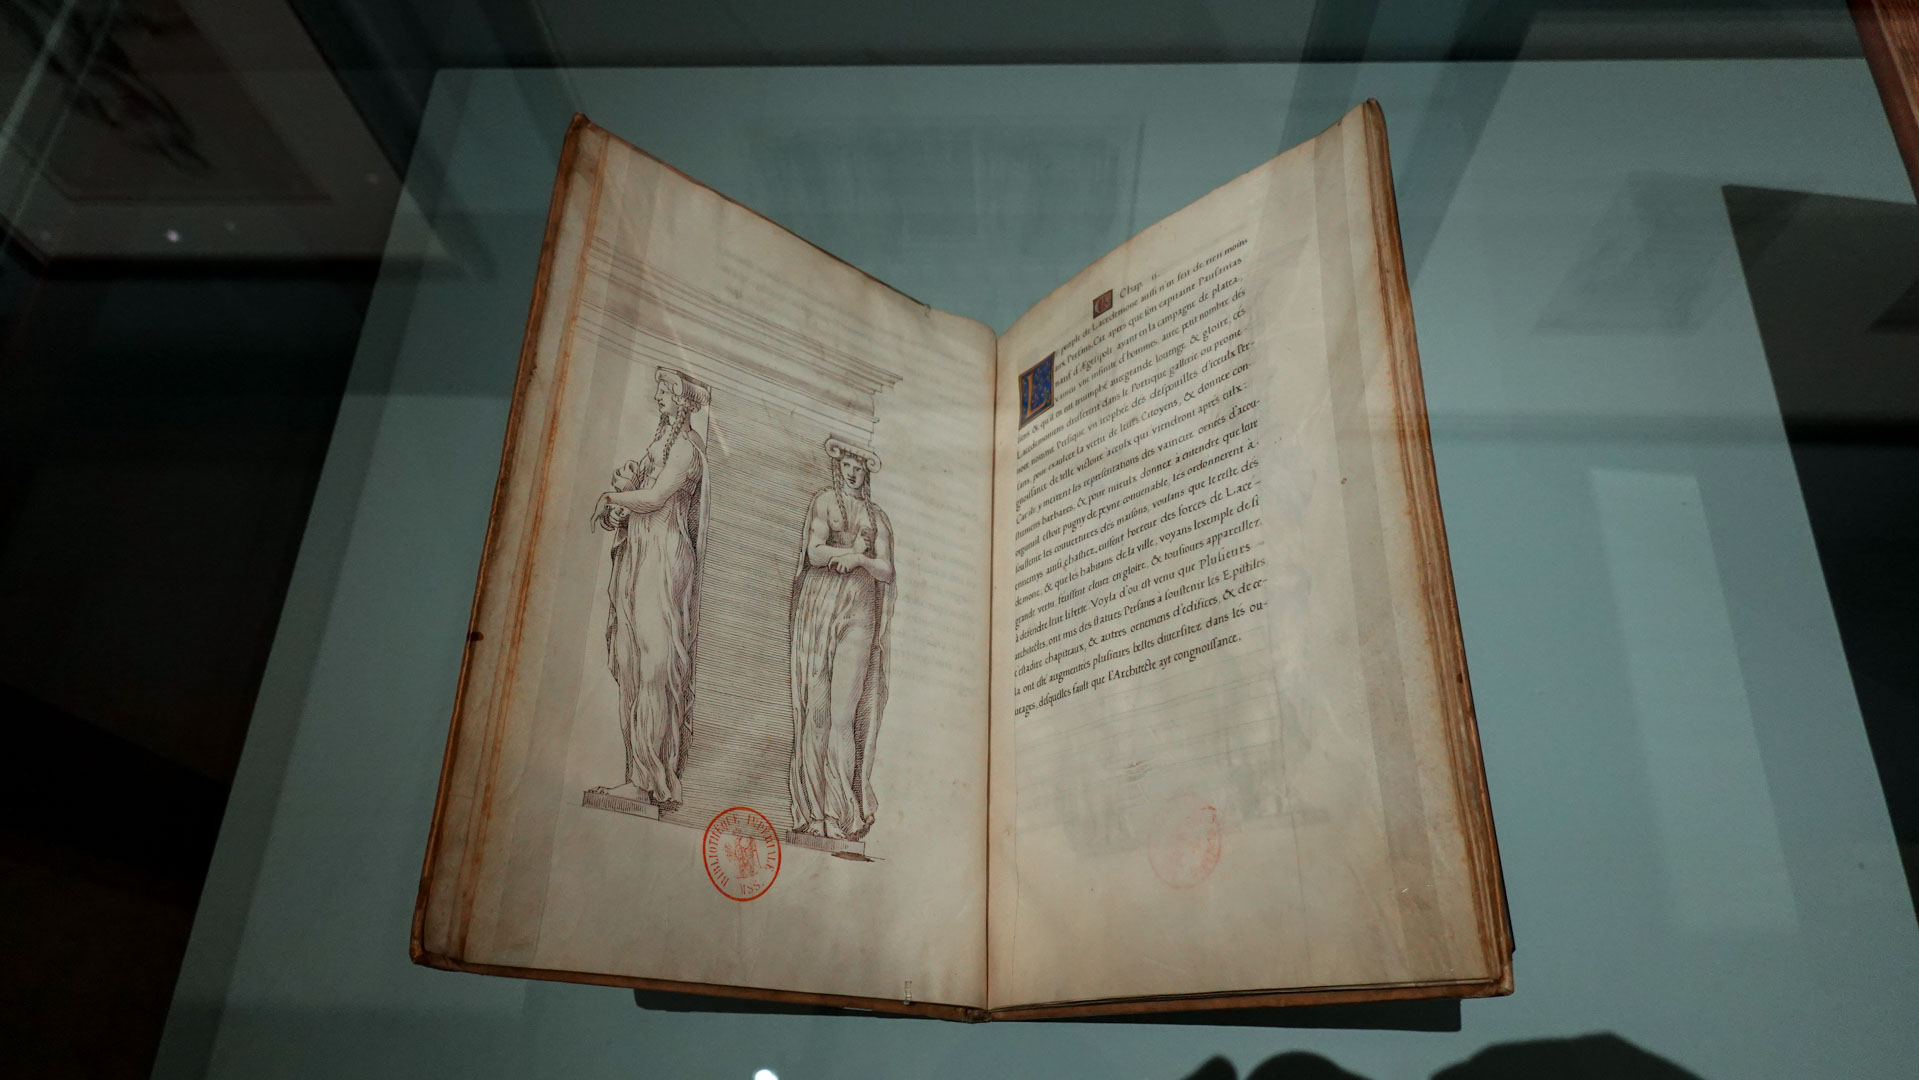 Chap. ii.
peuple de Lacedemone aussi n'en feit de rien moins
aux Persans, Car apres que son capitaine Pausanias
natif d'Ægesipoli, ayant en la campagne de platea,
vaincu vne infinite d'hommes, auec petit nombre des
siens, & qu'il en eut triumphé auec grande louenge, & gloire, ces
Lacedemoniens dresserent dans le Portique gallerie ou prome-
noir nommé Persique, vn trophée des despouilles d'iceulx Per-
sans, pour exaulcer la vertu de leurs Citoyens, & donner con-
gnoissance de telle victoire a ceulx qui viendront apres eulx:
Car ilz y meirent les representations des vaincuz ornées d'acou-
stremens barbares, & pour mieulx donner à entendre que leur
orgueuil estoit pugny de peyne conuenable, les ordonnerent à
soustenir les couuertures des maisons, voulans que le reste des
ennemys ainsi chastiez, eussent horreur des forces de Lace-
demone, & que les habitans de la ville, voyans l'exemple de si
grande vertu, feussent eleuez en gloire, & tousiours appareillez
à defendre leur liberté. Voyla d'ou est venu que Plusieurs
architectes, ont mis des statues Persanes à soustenir les Epistiles
c'estadire chapitaux, & autres ornemens d'edifices, & de ce-
la ont esté augmentés plusieurs belles diuersitez dans les ou-
urages, desquelles fault que l'Architecte ayt congnoissance.
BIBLIOTHEQUE IMPERIALE
MSS.